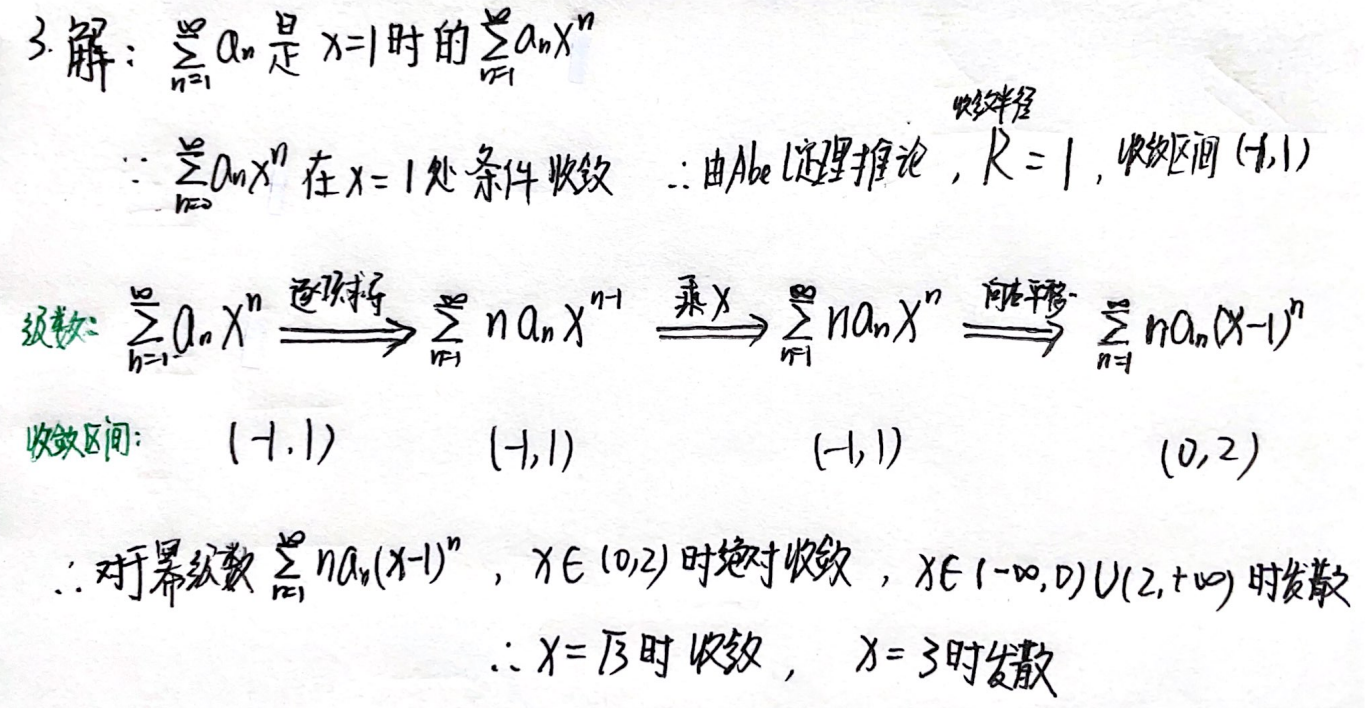 3. 解: $\sum_{n=1}^{\infty} a_n$ 是 x=1时的 $\sum_{n=1}^{\infty} a_n x^n$
∵ $\sum_{n=0}^{\infty} a_n x^n$ 在 x=1处条件收敛 ∴由Abel定理推论, 收敛半径 R=1, 收敛区间 (-1,1)
级数: $\sum_{n=1}^{\infty} a_n x^n \xRightarrow{逐项求导} \sum_{n=1}^{\infty} n a_n x^{n-1} \xRightarrow{乘x} \sum_{n=1}^{\infty} n a_n x^n \xRightarrow{向右平移} \sum_{n=1}^{\infty} n a_n (x-1)^n$
收敛区间: (-1,1) (-1,1) (-1,1) (0,2)
∴对于幂级数 $\sum_{n=1}^{\infty} n a_n (x-1)^n$, x∈(0,2)时绝对收敛, x∈(-∞,0)∪(2,+∞)时发散
∴ x=√3时收敛, x=3时发散